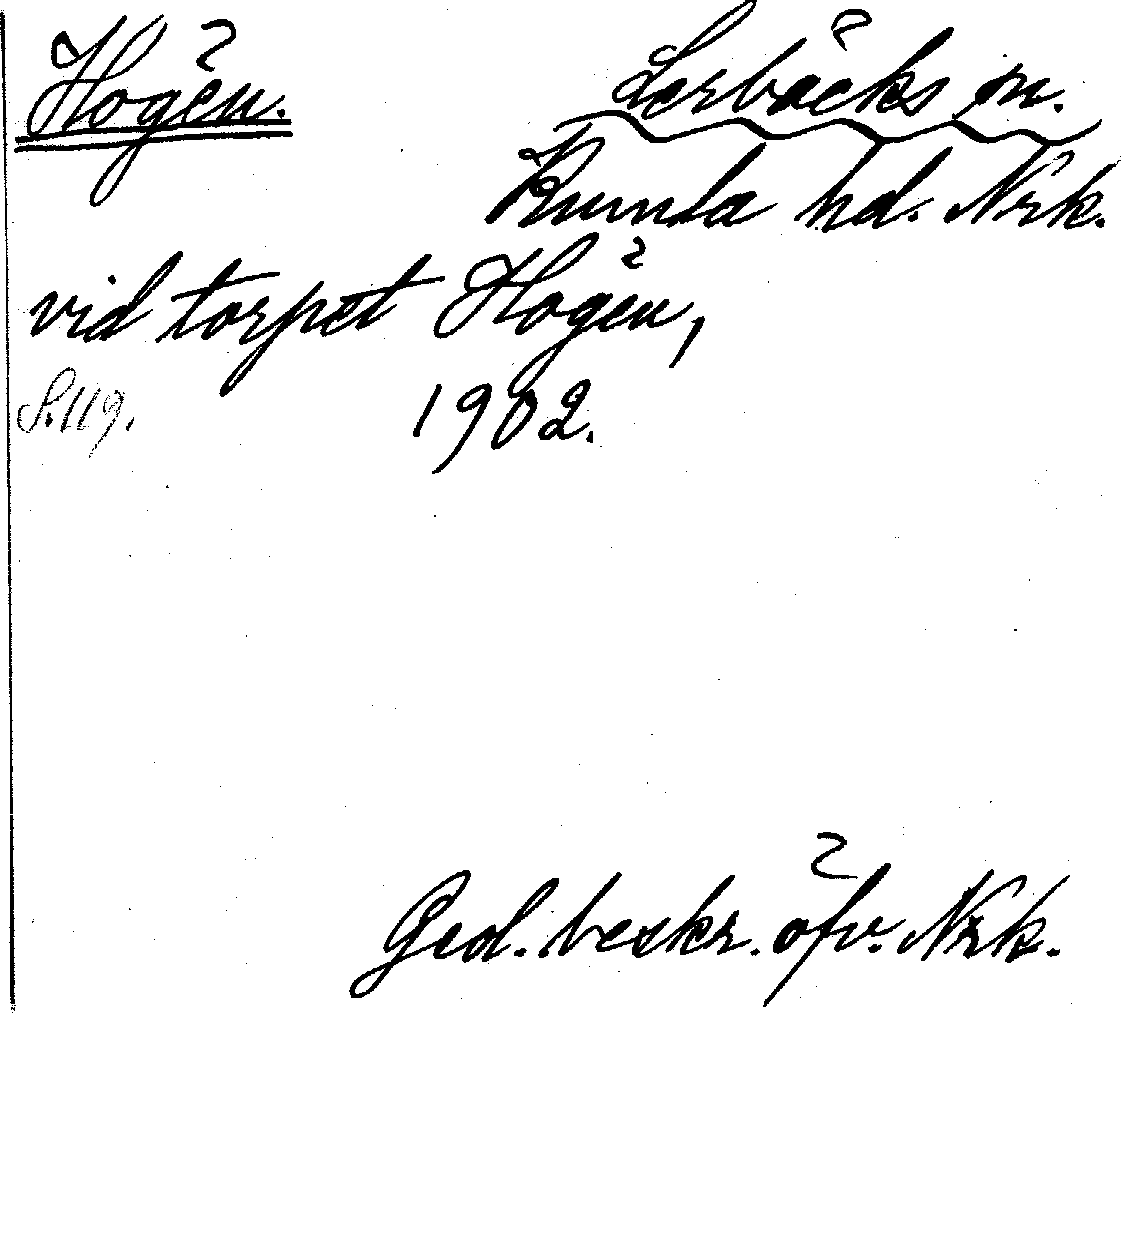 Högen. Lerbäcks sn.
Kumla hd. Nrk.
vid torpet Högen,
S. 119. 1902.
Geol. beskr. öfv. Nrk.